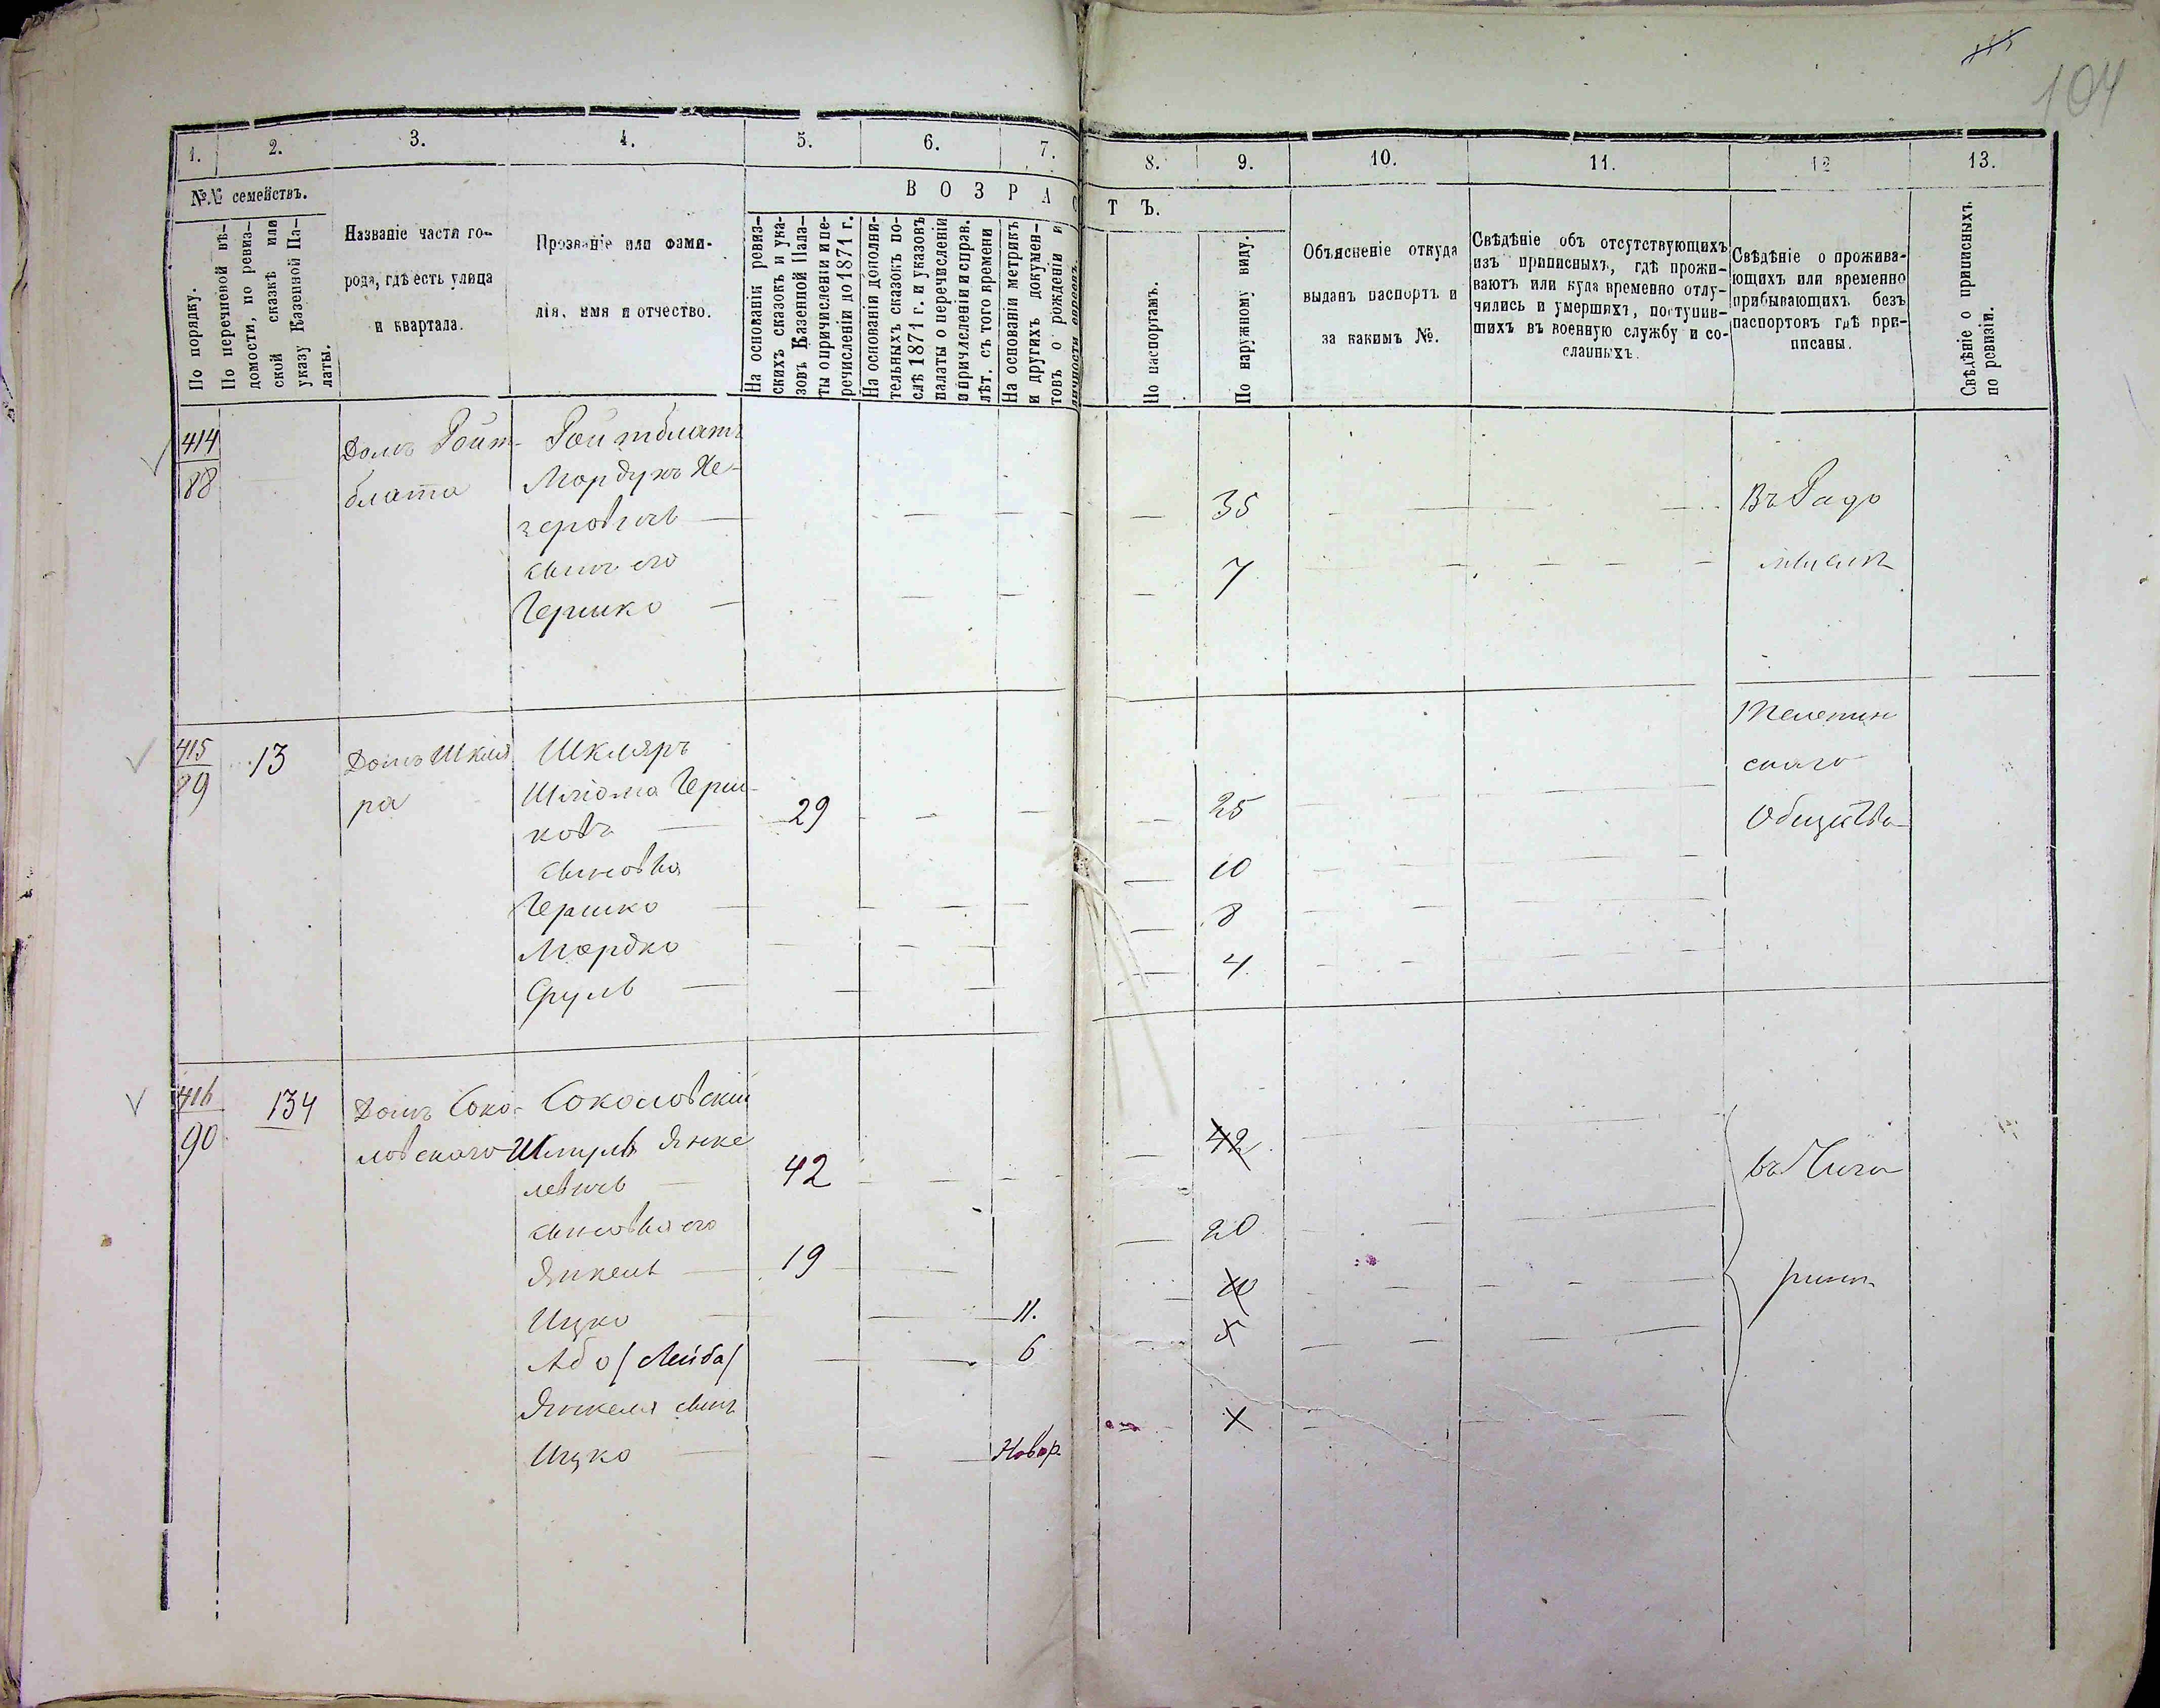 115
104
1. 2. 3. 4. 5. 6. 7. 8. 9. 10. 11. 12 13.
№№ семействъ.
В О З Р А С Т Ъ.
По порядку.
По перечневой вѣ-
домости, по ревиз-
ской сказкѣ или
указу Казенной Па-
латы.
Названіе части го-
рода, гдѣ есть улица
и квартала.
Прозваніе или фами-
лія, имя и отчество.
На основаніи ревиз-
скихъ сказокъ и ука-
зовъ Казенной Пала-
ты о причисленіи и пе-
речисленіи до 1871 г.
На основаніи дополни-
тельныхъ сказокъ по-
слѣ 1871 г. и указовъ
палаты о перечисленіи
и причисленіи и справ.
лѣт. съ того времени
На основаніи метрикъ
и другихъ докумен-
товъ о рожденіи и
личности евреевъ.
По паспортамъ.
По наружному виду.
Объясненіе откуда
выданъ паспортъ и
за какимъ №.
Свѣдѣніе объ отсутствующихъ
изъ приписныхъ, гдѣ прожи-
ваютъ или куда временно отлу-
чились и умершихъ, поступив-
шихъ въ военную службу и со-
сланныхъ.
Свѣдѣніе о прожива-
ющихъ или временно
прибывающихъ безъ
паспортовъ гдѣ при-
писаны.
Свѣдѣніе о приписныхъ
по ревизіи.
414 Домъ Ройт- Ройтблатъ
88 блата Мордухъ Хе-
зеровичь — 35 Въ Радо
сынъ его 7 мыслѣ
Гершко —
415 13 Домъ Шкля Шкляръ
89 ра Шліома Герш-
ковъ — 29 25
сыновья 10
Гершко 8
Мордко 4
Сруль —
Телепин
скаго
Общества
416 134 Домъ Соко- Соколовскій
90 ловскаго Шмуль Янке 42
левичь — 42
сыновья его 20
Янкель — 19 10
Ицко — 11.
Або (Лейба) 6
Янкеля сынъ
Ицко — Новор.
въ Чиги
ринѣ